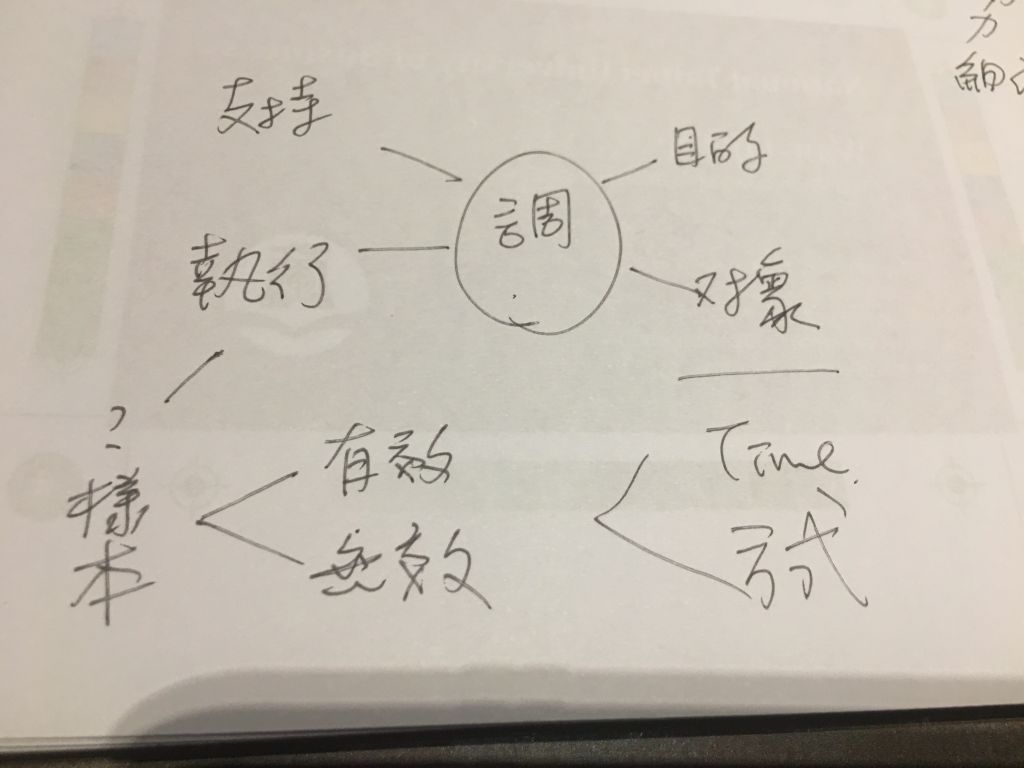 支持
目的
調
執行
对象
?
樣本
有效
無效
Time
方式
力